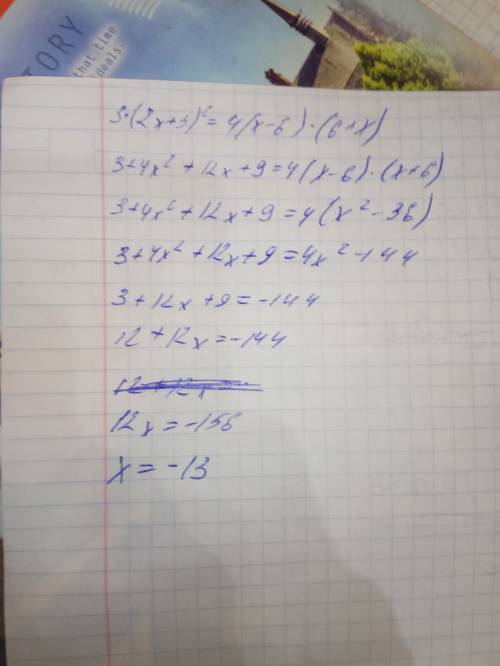 TORY
that time
deals.
3+(2x+3)²=4(x-6)·(6+x)
3+4x²+12x+9=4(x-6)·(x+6)
3+4x²+12x+9=4(x²-36)
3+4x²+12x+9=4x²-144
3+12x+9=-144
12+12x=-144
12x=-156
x=-13